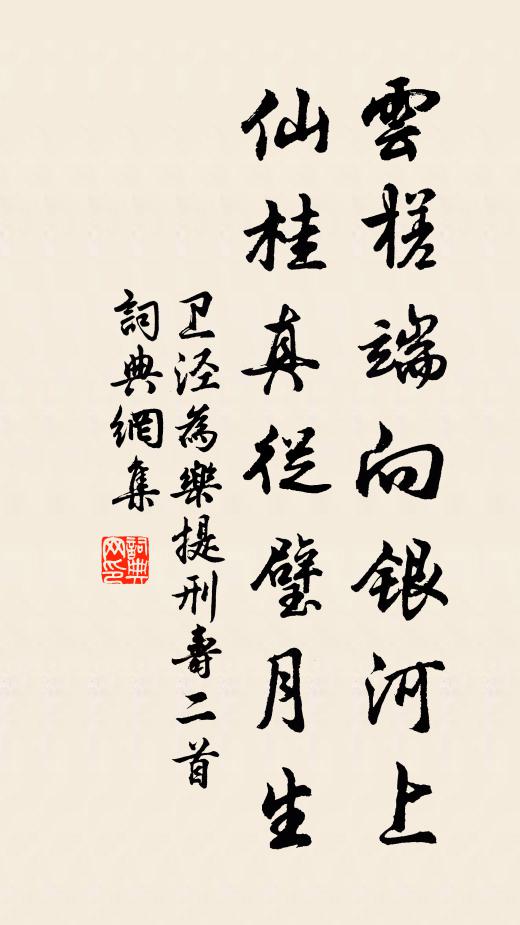 雲槎端向銀河上
仙桂真從璧月生
卫泾為樂提刑壽二首
詞典網集
詞典网印